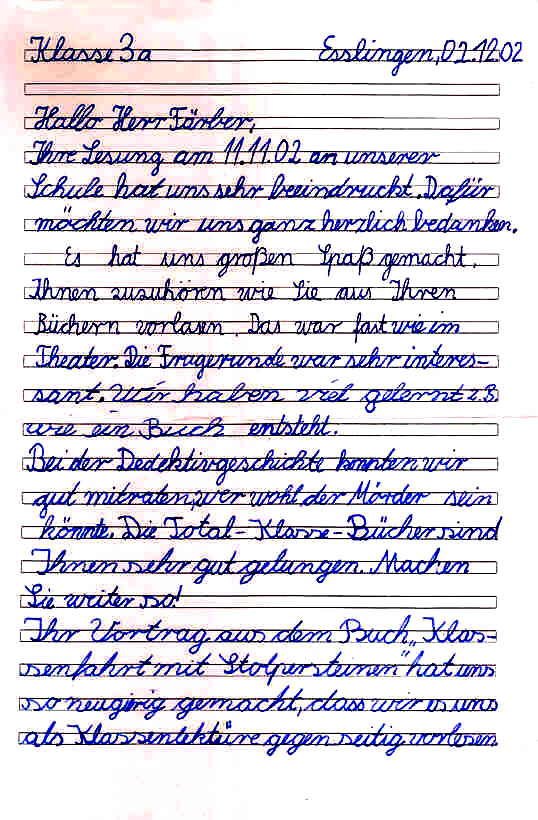 Klasse 3a Esslingen, 02.12.02
Hallo Herr Färber,
Ihre Lesung am 11.11.02 an unserer
Schule hat uns sehr beeindruckt. Dafür
möchten wir uns ganz herzlich bedanken.
Es hat uns großen Spaß gemacht,
Ihnen zuzuhören wie Sie aus Ihren
Büchern vorlasen. Das war fast wie im
Theater. Die Fragerunde war sehr interes-
sant. Wir haben viel gelernt z.B.
wie ein Buch entsteht.
Bei der Dedektivgeschichte konnten wir
gut mitraten, wer wohl der Mörder sein
könnte. Die Total-Klasse-Bücher sind
Ihnen sehr gut gelungen. Machen
Sie weiter so!
Ihr Vortrag aus dem Buch „Klas-
senfahrt mit Stolpersteinen" hat uns
so neugirig gemacht, dass wir es uns
als Klassenlektüre gegen seitig vorlesen